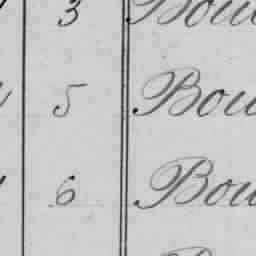 3 Bou
5 Bou
6 Bou